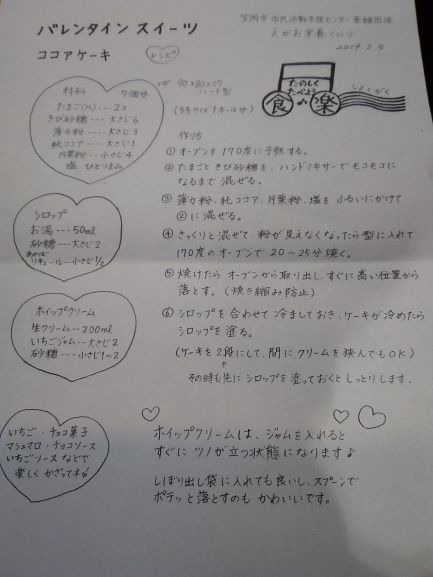 バレンタイン スイーツ
ココアケーキ
レシピ
笠岡市 市民活動支援センター 登録団体
えがお栄養くらぶ
2019.2.4
たのしく
たべよう
食♪楽
しょくがく
材料 7個分
たまご(M)---2コ
きび砂糖---大さじ6
薄力粉---大さじ3
純ココア---大さじ1
片栗粉---小さじ4
塩 ひとつまみ
90×80×27
ハート型
(5号サイズ1ホール分)
作り方
① オーブンを170度に予熱する。
② たまごときび砂糖を、ハンドミキサーでモコモコに
なるまで混ぜる。
③ 薄力粉、純ココア、片栗粉、塩をふるいにかけて
②に混ぜる。
④ さっくりと混ぜて、粉が見えなくなったら型に入れて
170度のオーブンで20〜25分焼く。
⑤ 焼けたらオーブンから取り出し、すぐに高い位置から
落とす。(焼き縮み防止)
⑥ シロップを合わせて冷ましておき、ケーキが冷めたら
シロップを塗る。
(ケーキを2段にして、間にクリームを挟んでもOK)
その時も先にシロップを塗っておくとしっとりします。
シロップ
お湯---50ml
砂糖---大さじ2
あれば
リキュール---小さじ1/2
ホイップクリーム
生クリーム---200ml
いちごジャム---大さじ2
砂糖---小さじ1〜2
いちご・チョコ菓子
マシュマロ・チョコソース
いちごソースなどで
楽しくかざってネ♪
ホイップクリームは、ジャムを入れると
すぐにツノが立つ状態になります♪
しぼり出し袋に入れても良いし、スプーンで
ポテッと落とすのもかわいいです。